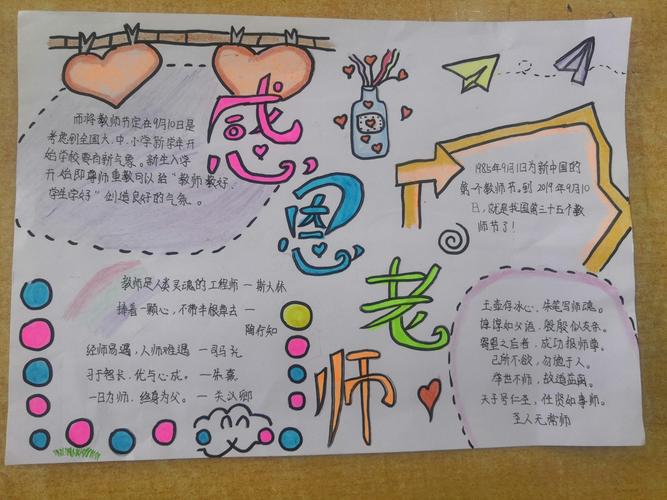 而将教师节定在9月10日是
考虑到全国大、中、小学新学年开
始学校要有新气象。新生入学
开始即尊师重教可以给“教师教好、
学生学好”创造良好的气氛。
感恩老师
1985年9月10日为新中国的
第一个教师节。到2019年9月10
日,就是我国第三十五个教
师节了!
教师是人类灵魂的工程师 — 斯大林
捧着一颗心,不带半根草去 —
陶行知
经师易遇,人师难遇 — 司马光
习于智长,优与心成。 — 朱熹
一日为师,终身为父。 — 关汉卿
玉壶存冰心,朱笔写师魂。
谆谆如父语,殷殷似友亲。
己所不欲,勿施于人。
天子号仁圣,任贤如事师。
至人无常师